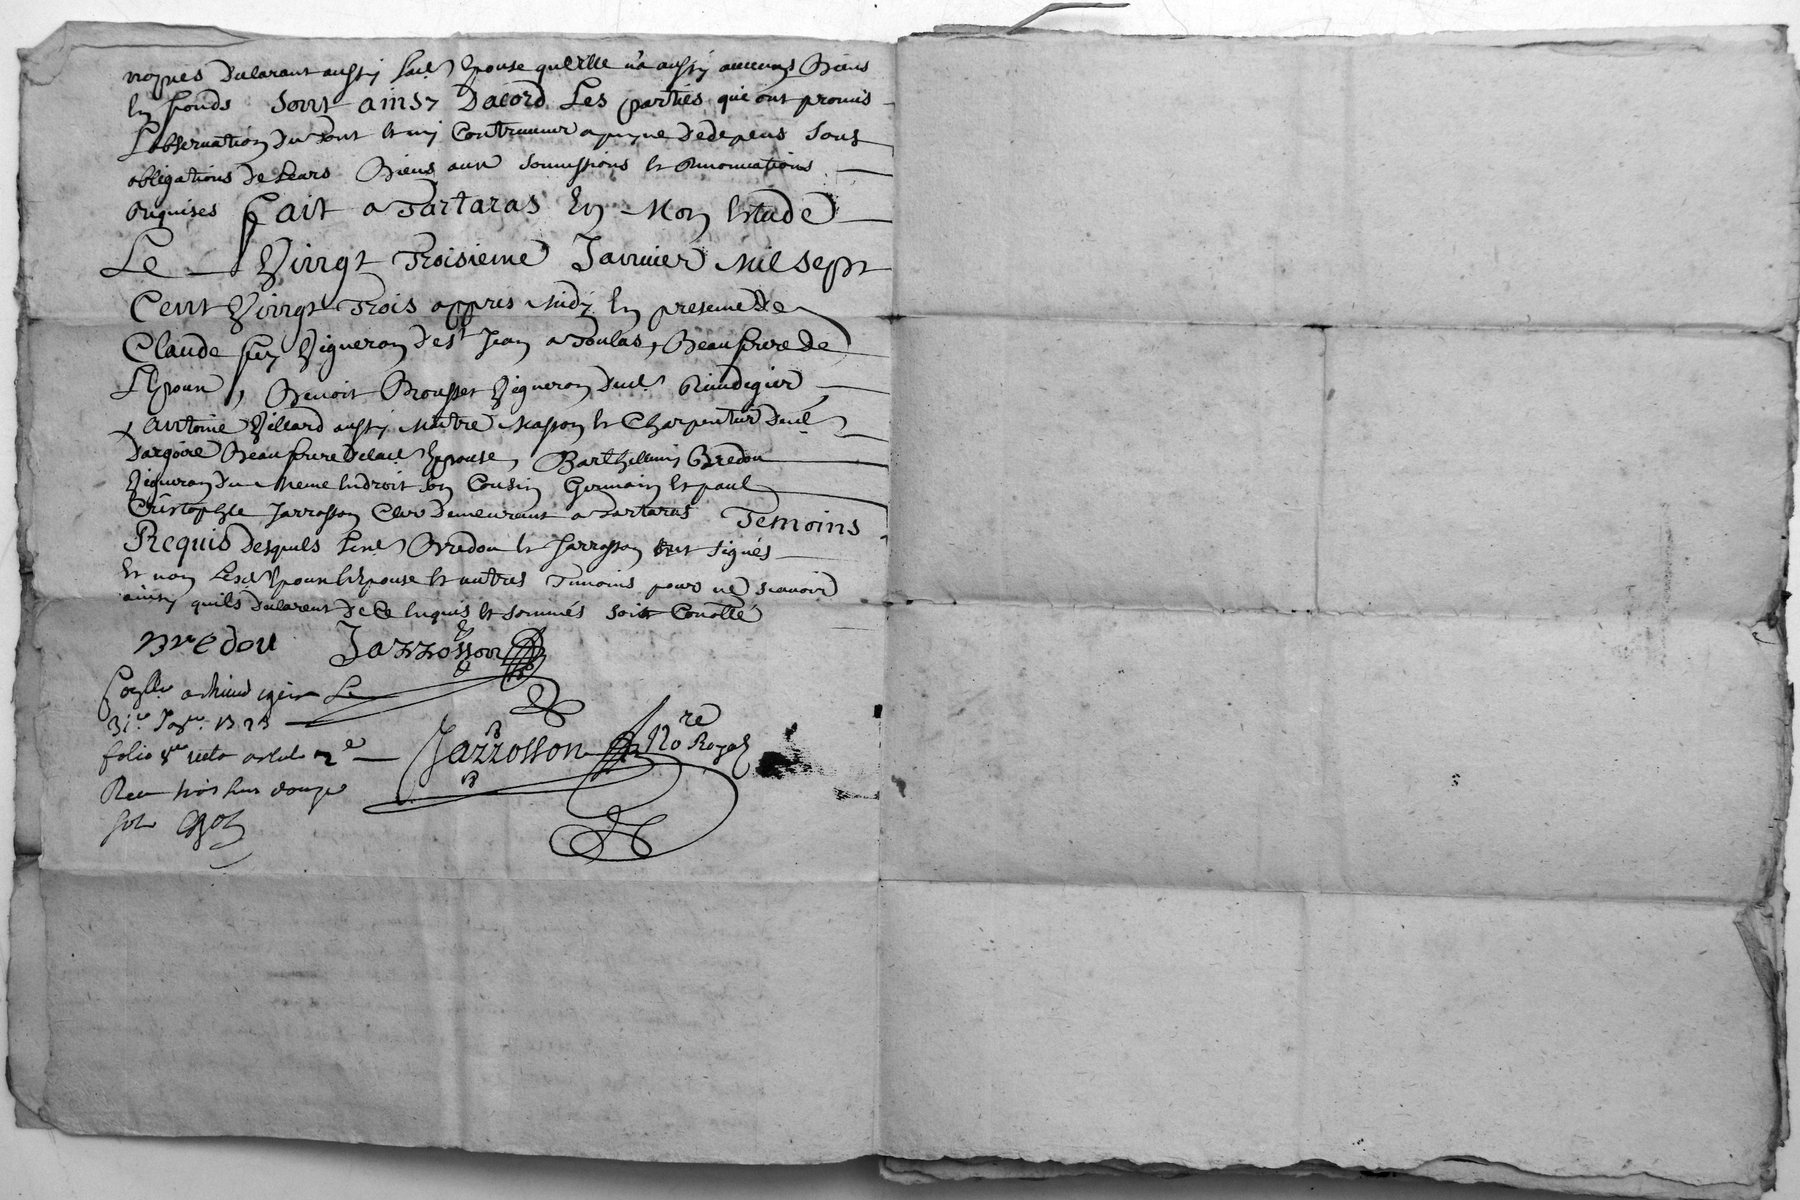 declarant aussy lad. Epouse quelle n'a aussy aucuns Biens
En fonds sont ainsy Dacord Les parties qui ont promis
L'observation du tout et ny Contrevenir a peyne de depens Sous
obligations de Leurs Biens aux soumissions et Renonciations
Requises Fait a Tartaras En Mon Etude
Le Vingt Troisieme Janvier Mil sept
Cent Vingt Trois appres Midy En presence de
Claude Vigneron de St Jean a Toulas, Beaufrere de
L'Epoux, Benoit Brousset Vigneron dud.
Antoine Villard aussy Maitre Masson et Charpentier dud.
Dargoire Beaufrere de lad. Epouse, Barthellemy Bredou
Vigneron du Meme Endroit son Cousin Germain et paul
Cristophle Jarrosson Clerc Demeurant a Tartaras Temoins
Requis Desquels Led. Bredou et Jarrosson ont signés
Et non Lesd. Epoux Epouse et autres Temoins pour ne scavoir
ainsy quils declarent De Ce Enquis et sommés soit Conollé
Bredou Jarrosson
Conllé a Le
31e 1723
folio recto article 2e Jarrosson Nore Royal
Receu trois livres douze
sols